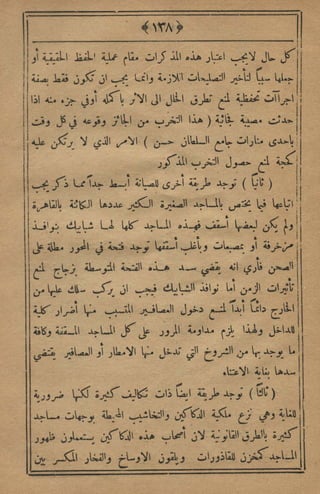 ﴿ ١٣٨ ﴾
كل حال لايجب اعتبار هذه المذكرات مقام عملية الحفظ الحقيقية أو
جعلها سببًا لتأخير التصليحات اللازمة وانما يجب ان تكون فقط بصفة
اجراآت تحفظية لمنع تطرق الخلل الى الاثر بأكمله أوفي جزء منه اذا
حدثت مصيبة فجائية ( هذا التخرب من الجائز وقوعه في كل وقت
باحدى منارات جامع السلطان حسن ) الامر الذي لا يرتكن عليه
كحجة لمنع حصول التخرب المذكور
( ثانيًا ) توجد طريقة أخرى للصيانة أبسط جدًا مما ذكر يجب
اتباعها فيما يختص بالمساجد الصغيرة الكثير عددها الكائنة بالقاهرة
ولم يكن لبعضها أسقف فهذه المساجد كلها لها شبابيك بنوافذ
مزخرفة أو بمصبعات وبأغلب أسقفها توجد فتحة في المحور مطلة على
الصحن فأرى انه يقضي سد هذه الفتحة المتوسطة بزجاج لمنع
تأثيرات الزمن أما نوافذ الشبابيك فيجب ان يركب سلك عليها من
الخارج دائمًا أبدًا لمنع دخول العصافير المتسبب منها أضرار كلية
للداخل ولهذا يلزم مداومة المرور على كل المساجد المسقفة وكافة
ما يوجد بها من الشروخ التي تدخل منها الامطار أو العصافير يقتضي
سدها بغاية الاعتناء
( ثالثًا ) توجد طريقة ايضًا ذات تكاليف كثيرة لكنها ضرورية
للغاية وهي نزع ملكية الدكاكين والتخاشيب المحيطة بوجهات مساجد
كثيرة بالطرق القانونية لان أصحاب هذه الدكاكين يستعملون ظهور
المساجد كمخزن للقاذورات ويلقون الاوساخ والفخار المكسر بين